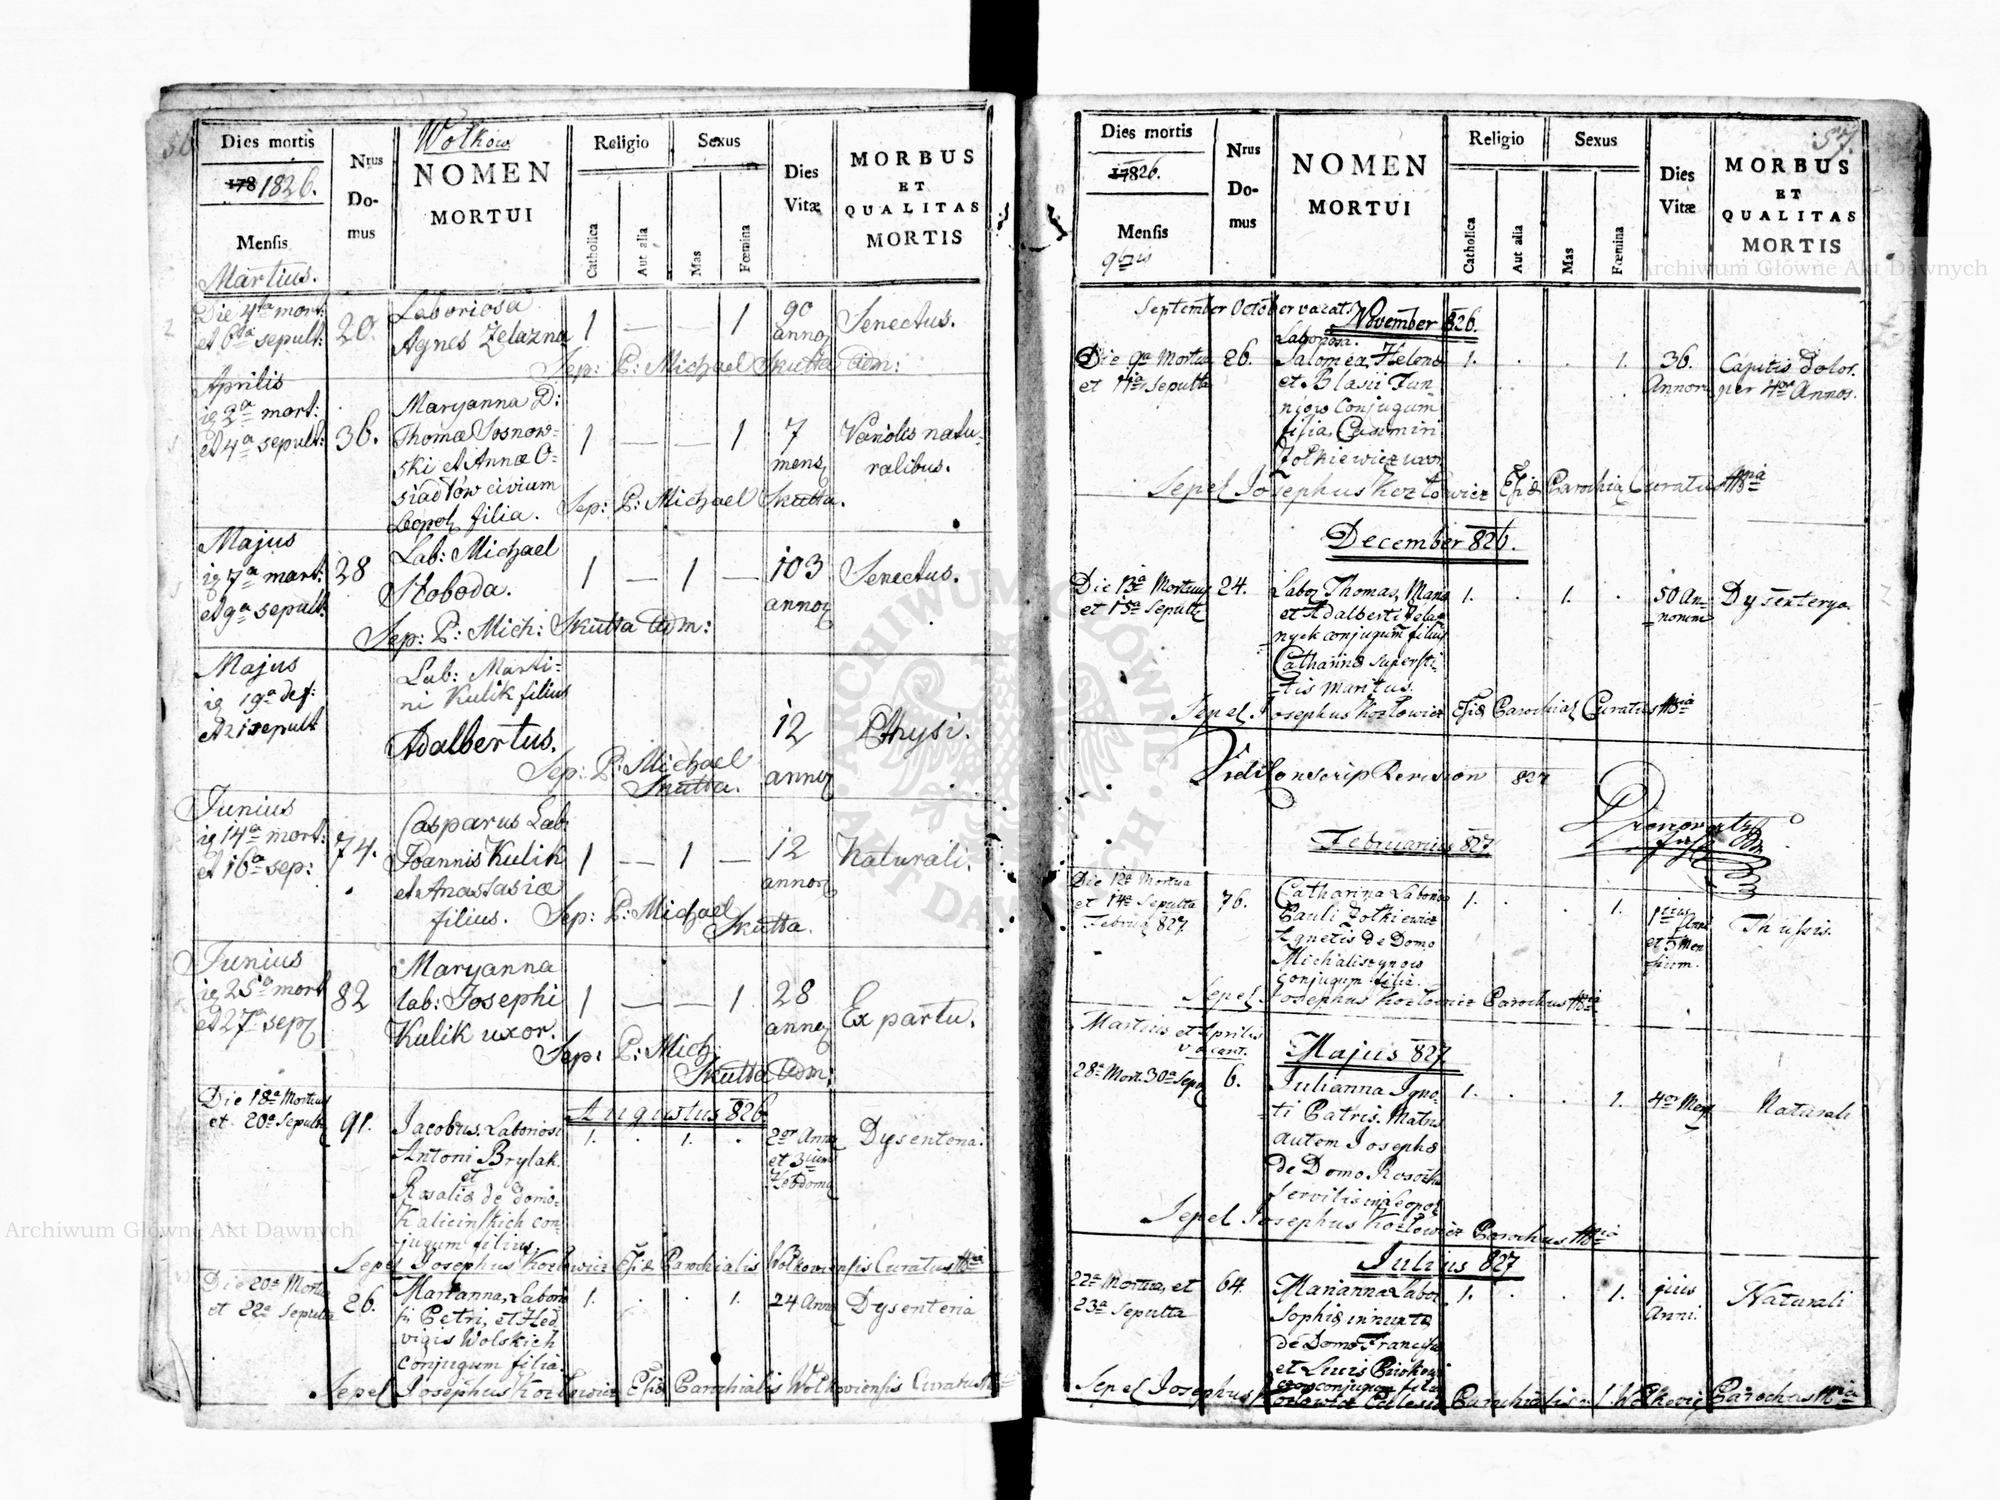 Wołkow
Dies mortis
1781826.
Mensis
Martius.
Nrus
Do-
mus
NOMEN
MORTUI
Religio
Catholica
Aut alia
Sexus
Mas
Fœmina
Dies
Vitæ
MORBUS
ET
QUALITAS
MORTIS
Die 4ta mort:
et 6ta sepult:
20.
Laboriosa
Agnes Zelazna
1 — — 1
90
annoz
Senectus.
Sep: P: Michael Skutta Adm:
Aprilis
ig 2a mort:
et 4a sepult:
36.
Maryanna D:
Thomæ Sosnow-
ski et Annæ O-
siadłów civium
Leopol filia.
1 — — 1
7
mens
Variolis natu-
ralibus.
Sep: P: Michael Skutta.
Majus
ig 7a mort:
et 9a sepult:
28
Lab: Michael
Słoboda.
1 — 1 —
103
annoz
Senectus.
Sep: P: Mich: Skutta Adm:
Majus
ig 19a def:
et 21 sepult
Lab: Marti-
ni Kulik filius
Adalbertus.
12
annoz
Phtysi.
Sep: P: Michael
Skutta.
Junius
ig 14a mort:
et 16a sep:
74.
Casparus Lab:
Joannis Kulik
et Anastasiæ
filius.
1 — 1 —
12
annoz
Naturali.
Sep: P: Michael
Skutta.
Junius
ig 25a mort
et 27a sep
82
Maryanna
lab: Josephi
Kulik uxor.
1 — — 1
28
annoz
Ex partu.
Sep: P: Mich:
Skutta Adm:
Augustus 826
Die 18a Mortuus
et 20a Sepult
91.
Jacobus Laboriosi
Antoni Brylak
et
Rosaliæ de domo
Kalicinskich con-
jugum filius.
1. . 1. .
2or Anno
et 3ium
Hebdoma
Dysenteria.
Sepel Josephus Kozłowicz Ecsiæ Parochialis Wołkoviensis Curatus
Die 20a Mortua
et 22a Sepulta
26.
Marianna, Labori
si Petri, et Hed
vigis Wolskich
conjugum filia.
1. . . 1.
24 Anno
Dysenteria
Sepel Josephus Kozłowicz Ecsiæ Parochialis Wołkoviensis Curatus
57.
Dies mortis
17826.
Mensis
9bris
Nrus
Do-
mus
NOMEN
MORTUI
Religio
Catholica
Aut alia
Sexus
Mas
Fœmina
Dies
Vitæ
MORBUS
ET
QUALITAS
MORTIS
September October vacat.
November 826.
Die 9a Mortua
et 11a Sepulta
26.
Laboriosa.
Salomea, Helena
et Blasii Fun
niow Conjugum
filia, Casimiri
Zolkiewicz uxor
1. . . 1.
36.
Annor
Capitis dolor.
per 4or Annos.
Sepel Josephus Kozłowicz Ecsiæ Parochia Curatus
December 826.
Die 13a Mortuus
et 15a Sepult
24.
Labor Thomas, Maria
et Adalberti Zelaz
nych conjugum filius
Catharinæ supersti-
tis maritus.
1. . 1. .
50 An-
norum
Dysenterya.
Sepel Josephus Kozłowicz Ecsiæ Parochial Curatus
Vidi Conscrip Revision 827
Februarius 827
Die 12a Mortua
et 14a Sepulta
Februa 827
76.
Catharina Laborio
Pauli Zolkiewicz
Agnetis de Domo
Michaliszynow
conjugum filia
1. . . 1.
1ius Anni
et 5 Men
sium.
Thussis.
Sepel Josephus Kozłowicz Parochus
Martius et Aprilis
vacant.
Majus 827
28a Mort. 30a Sepu
6.
Julianna Igno-
ti Patris. Matris
autem Josephæ
de Domo
Servilis in Leopol
1. . . 1.
4or Men
Naturali
Sepel Josephus Kozłowicz Parochus
Julius 827
22a Mortua, et
23a Sepulta
64.
Marianna Labor
Sophiæ innupta
de Domo Francis
et
conjugum filia
1. . . 1.
1ius
Anni.
Naturali
Sepel Josephus Kozłowicz Ecclesiæ Parochialis Parochus
Archiwum Główne Akt Dawnych
Archiwum Główne Akt Dawnych
ARCHIWUM GŁÓWNE · AKT DAWNYCH ·